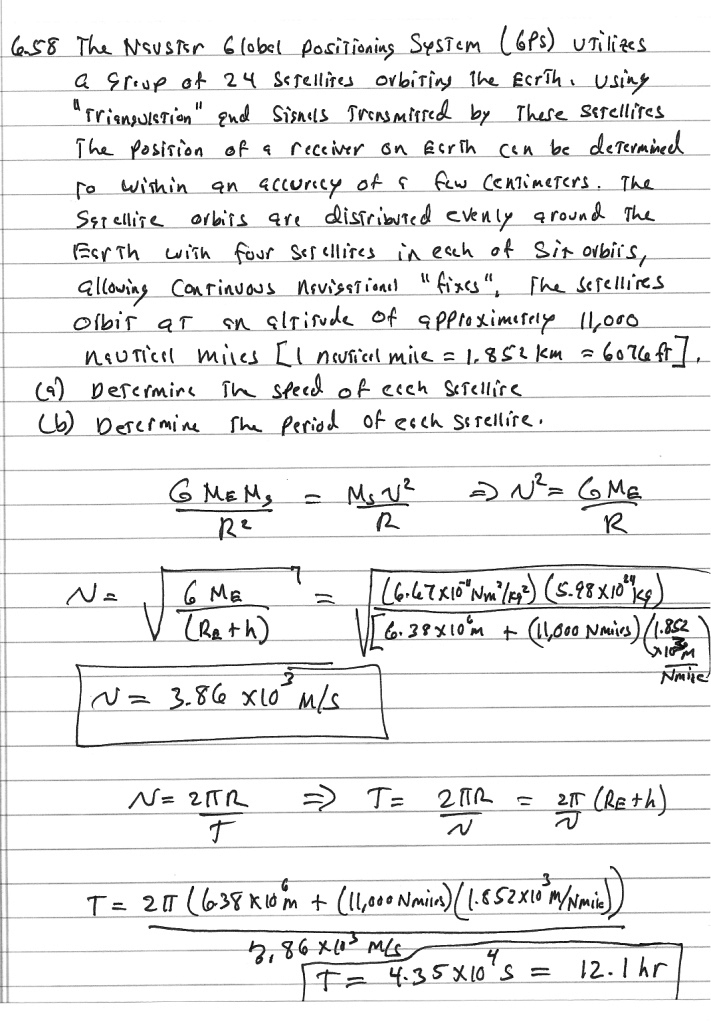 6.58 The Navstar Global Positioning System (GPS) utilizes
a group of 24 satellites orbiting the Earth. Using
"Triangulation" and signals transmitted by these satellites
The position of a receiver on Earth can be determined
to within an accuracy of a few centimeters. The
satellite orbits are distributed evenly around the
Earth with four satellites in each of six orbits,
allowing continuous navigational "fixes". The satellites
orbit at an altitude of approximately 11,000
nautical miles [1 nautical mile = 1.852 km = 6076 ft].
(a) Determine the speed of each satellite
(b) Determine the period of each satellite.
G ME Ms / R² = Ms v² / R ⇒ v² = G ME / R
v = √(G ME / (RE + h)) = √((6.67 x 10⁻¹¹ Nm²/kg²) (5.98 x 10²⁴ kg) / [6.38 x 10⁶ m + (11,000 Nmiles) (1.852 x 10³ m / Nmile)
v = 3.86 x 10³ m/s
v = 2πR / T ⇒ T = 2πR / v = 2π / v (RE + h)
T = 2π (6.38 x 10⁶ m + (11,000 Nmiles) (1.852 x 10³ m/Nmile)) / 3.86 x 10³ m/s
T = 4.35 x 10⁴ s = 12.1 hr